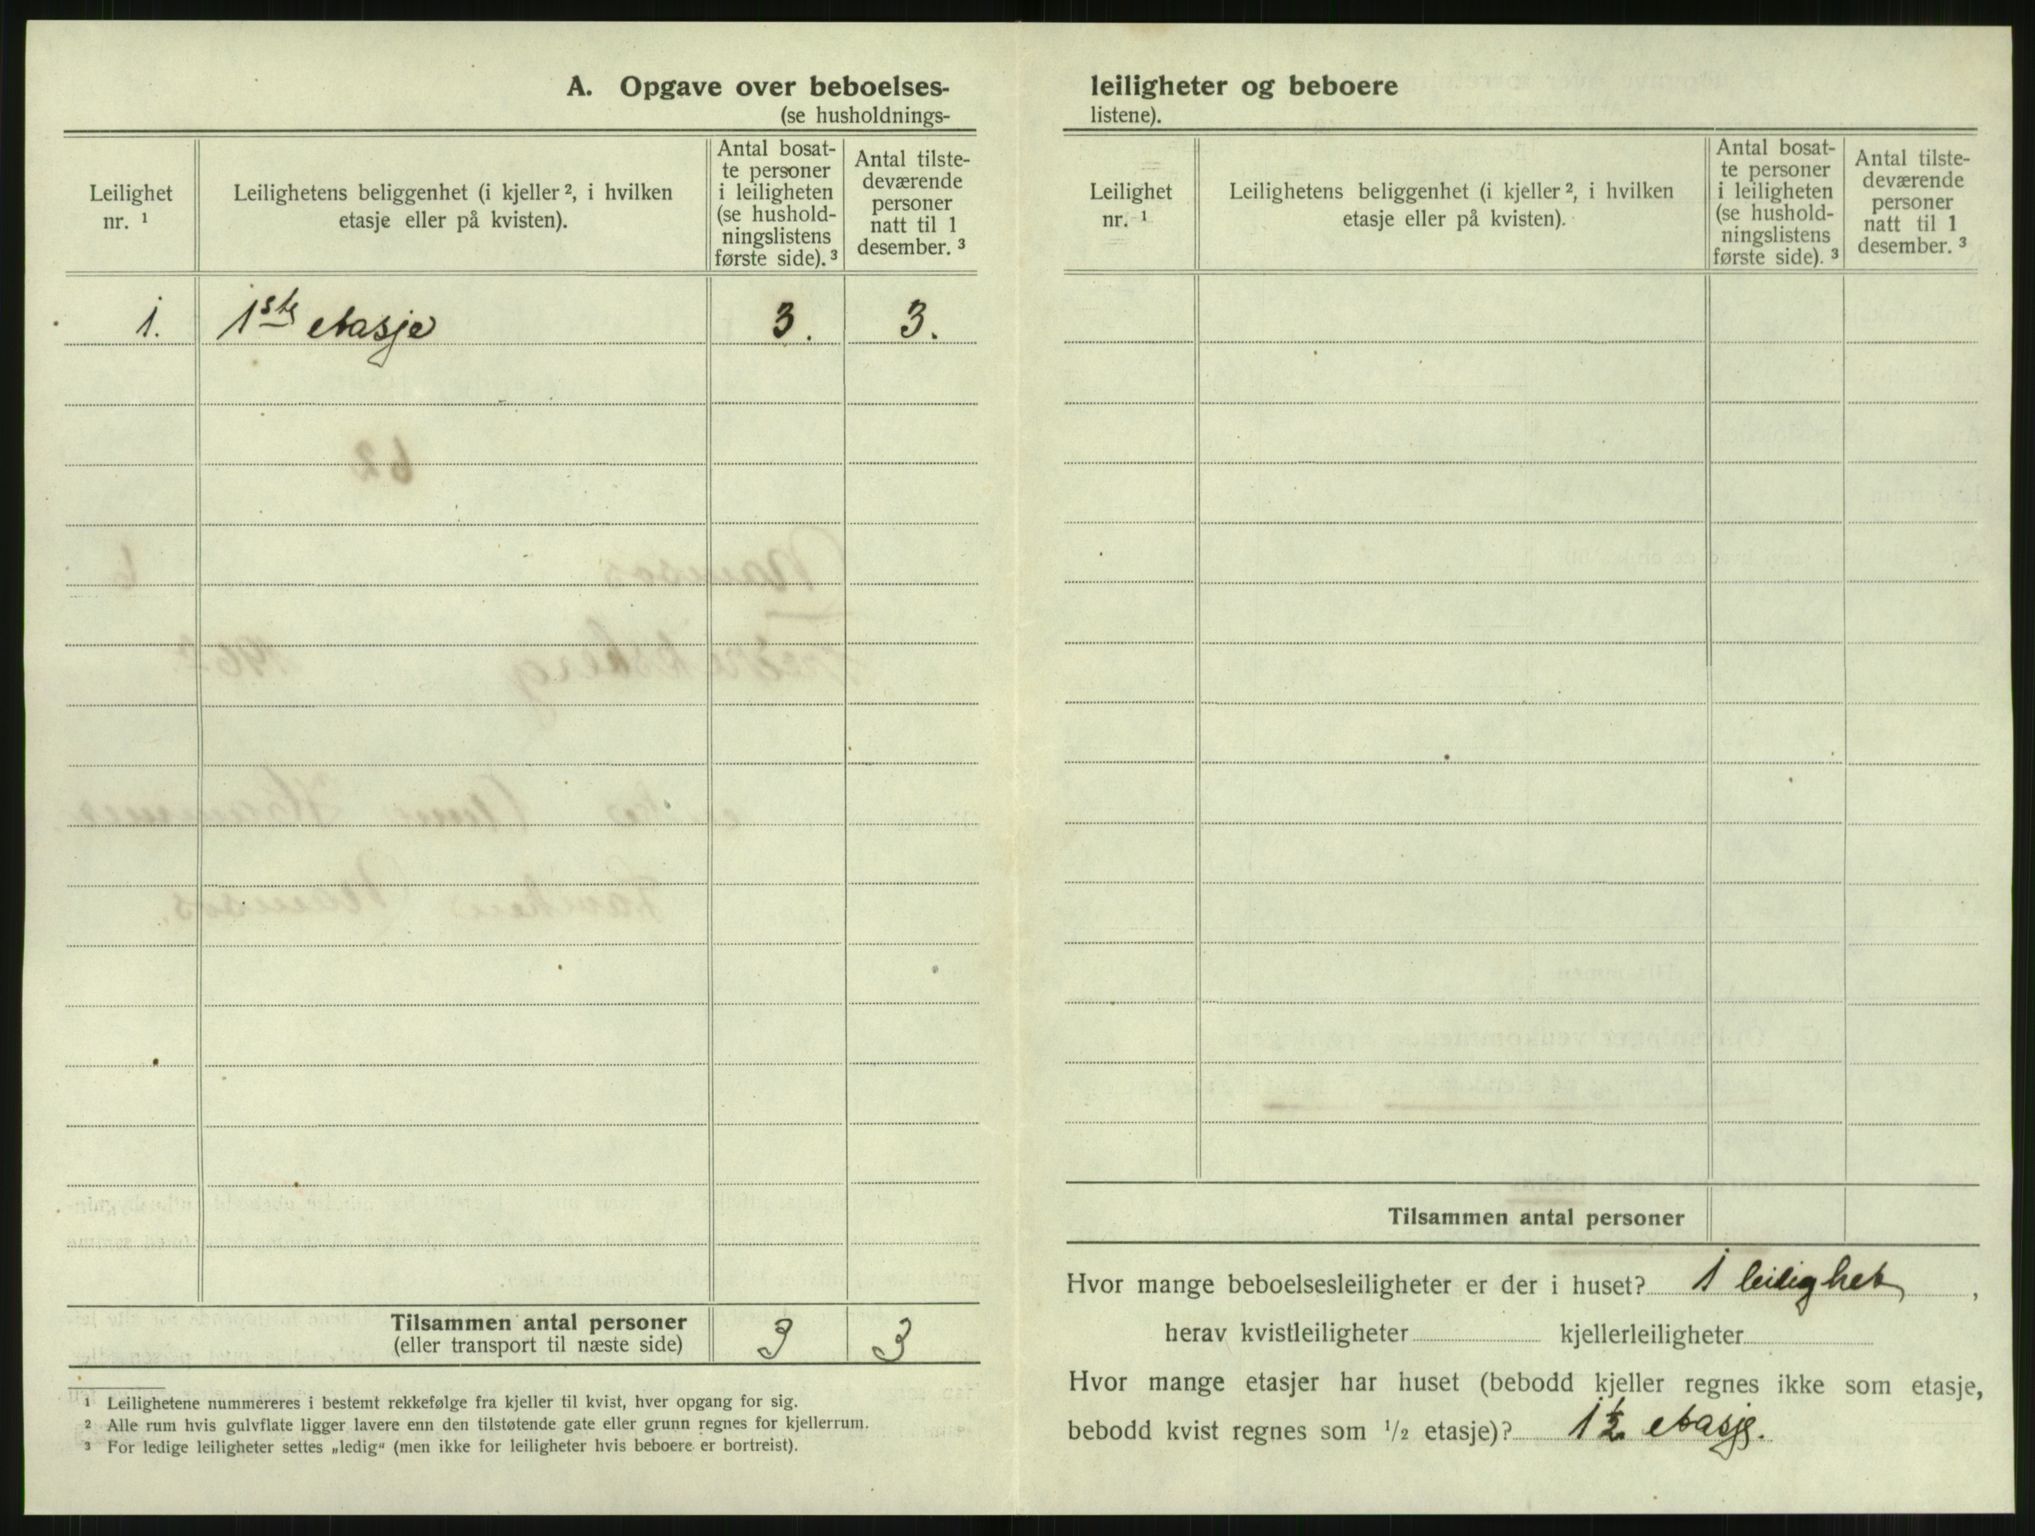 A. Opgave over beboelses-
(se husholdnings-
Leilighet nr. ¹
Leilighetens beliggenhet (i kjeller ², i hvilken etasje eller på kvisten).
Antal bosat-
te personer
i leiligheten
(se hushold-
ningslistens
første side). ³
Antal tilste-
deværende
personer
natt til 1
desember. ³
1. 1ste etasje 3. 3.
62
Namsos 6
Tilsammen antal personer 3 3
(eller transport til næste side)
¹ Leilighetene nummereres i bestemt rekkefølge fra kjeller til kvist, hver opgang for sig.
² Alle rum hvis gulvflate ligger lavere enn den tilstøtende gate eller grunn regnes for kjellerrum.
³ For ledige leiligheter settes „ledig“ (men ikke for leiligheter hvis beboere er bortreist).
leiligheter og beboere
listene).
Leilighet nr. ¹
Leilighetens beliggenhet (i kjeller ², i hvilken etasje eller på kvisten).
Antal bosat-
te personer
i leiligheten
(se hushold-
ningslistens
første side). ³
Antal tilste-
deværende
personer
natt til 1
desember. ³
Tilsammen antal personer
Hvor mange beboelsesleiligheter er der i huset? 1 leilighet,
herav kvistleiligheter kjellerleiligheter
Hvor mange etasjer har huset (bebodd kjeller regnes ikke som etasje,
bebodd kvist regnes som ¹/₂ etasje)? 1½ etasje.